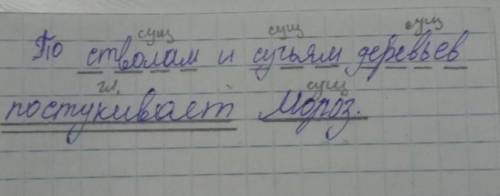 сущ сущ сущ
По стволам и сучьям деревьев
гл. сущ
постукивает Мороз.